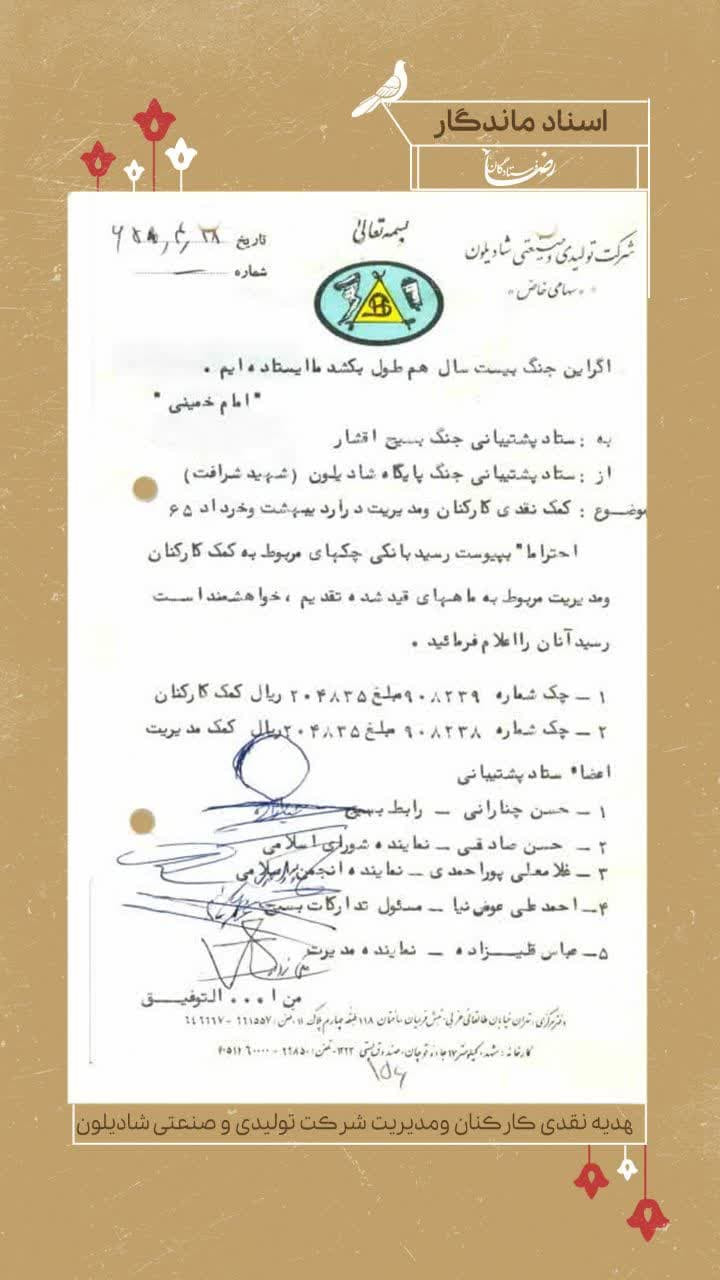 اسناد ماندگار
فرستادگان رضا
بسمه تعالی
شرکت تولیدی و صنعتی شادیلون
"سهامی خاص"
تاریخ
شماره
اگراین جنگ بیست سال هم طول بکشد ما ایستاده ایم .
"امام خمینی"
به : ستاد پشتیبانی جنگ بسیج اقشار
از : ستاد پشتیبانی جنگ پایگاه شادیلون (شهید شرافت)
موضوع : کمک نقدی کارکنان ومدیریت درارد یبهشت وخرداد ۶۵
احتراما" بپیوست رسید بانکی چکهای مربوط به کمک کارکنان
ومدیریت مربوط به ماههای قید شده تقدیم ، خواهشمند است
رسید آنان را اعلام فرمائید .
۱ – چک شماره ۹۰۸۲۳۹ مبلغ ۲۰۴۸۳۵ ریال کمک کارکنان
۲ – چک شماره ۹۰۸۲۳۸ مبلغ ۲۰۴۸۳۵ ریال کمک مدیریت
اعضاء ستاد پشتیبانی
۱ – حسن چنارانی – رابط بسیج
۲ – حسن صادقی – نماینده شورای اسلامی
۳ – غلامعلی پوراحمدی – نماینده انجمن اسلامی
۴– احمد علی عوض نیا – مسئول تدارکات بسیج
۵– عباس قلیزاده – نماینده مدیریت
من ا... التوفیق
دفترمرکزی : تهران خیابان طالقانی غربی، نبش فریمان ساختمان ۱۱۸ طبقه چهارم پلاک ۱۱، تلفن :
کارخانه : مشهد، کیلومتر ۱۷ جاده قوچان، صندوق پستی ۱۳۲۳، تلفن :
۱۵۶
هدیه نقدی کارکنان ومدیریت شرکت تولیدی و صنعتی شادیلون